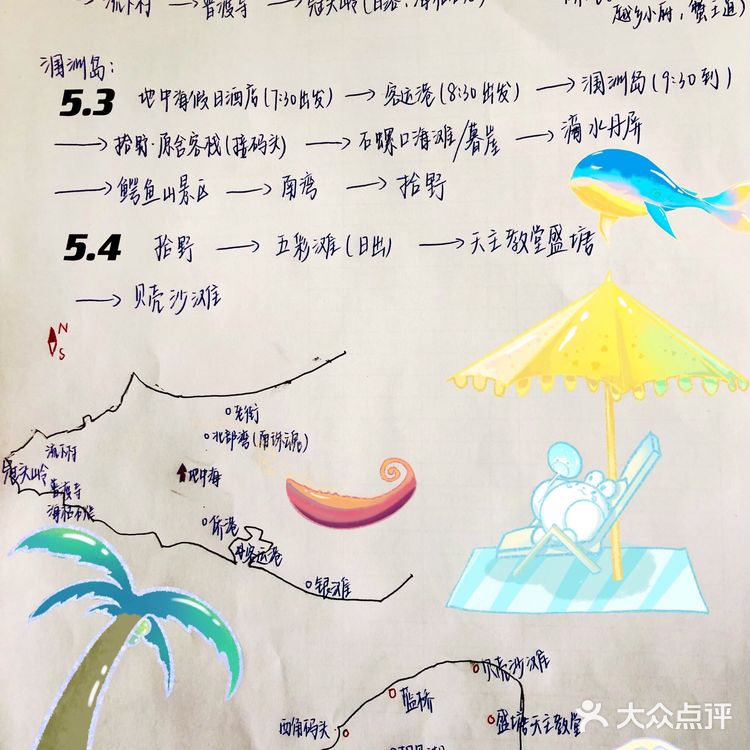 流下村 → 普渡寺 → 冠头岭(日落,
越乡小厨,蟹王道)
涠洲岛:
5.3 地中海假日酒店(7:30出发) → 客运港(8:30出发) → 涠洲岛(9:30到)
→ 拾野·原合客栈(接码头) → 石螺口海滩/暮崖 → 滴水丹屏
→ 鳄鱼山景区 → 南湾 → 拾野
5.4 拾野 → 五彩滩(日出) → 天主教堂盛塘
→ 贝壳沙滩
N
S
老街
北部湾(南珠魂)
流下村
冠头岭
地中海
普渡寺
侨港
客运港
银滩
贝壳沙滩
蓝桥
西角码头
盛塘天主教堂
大众点评